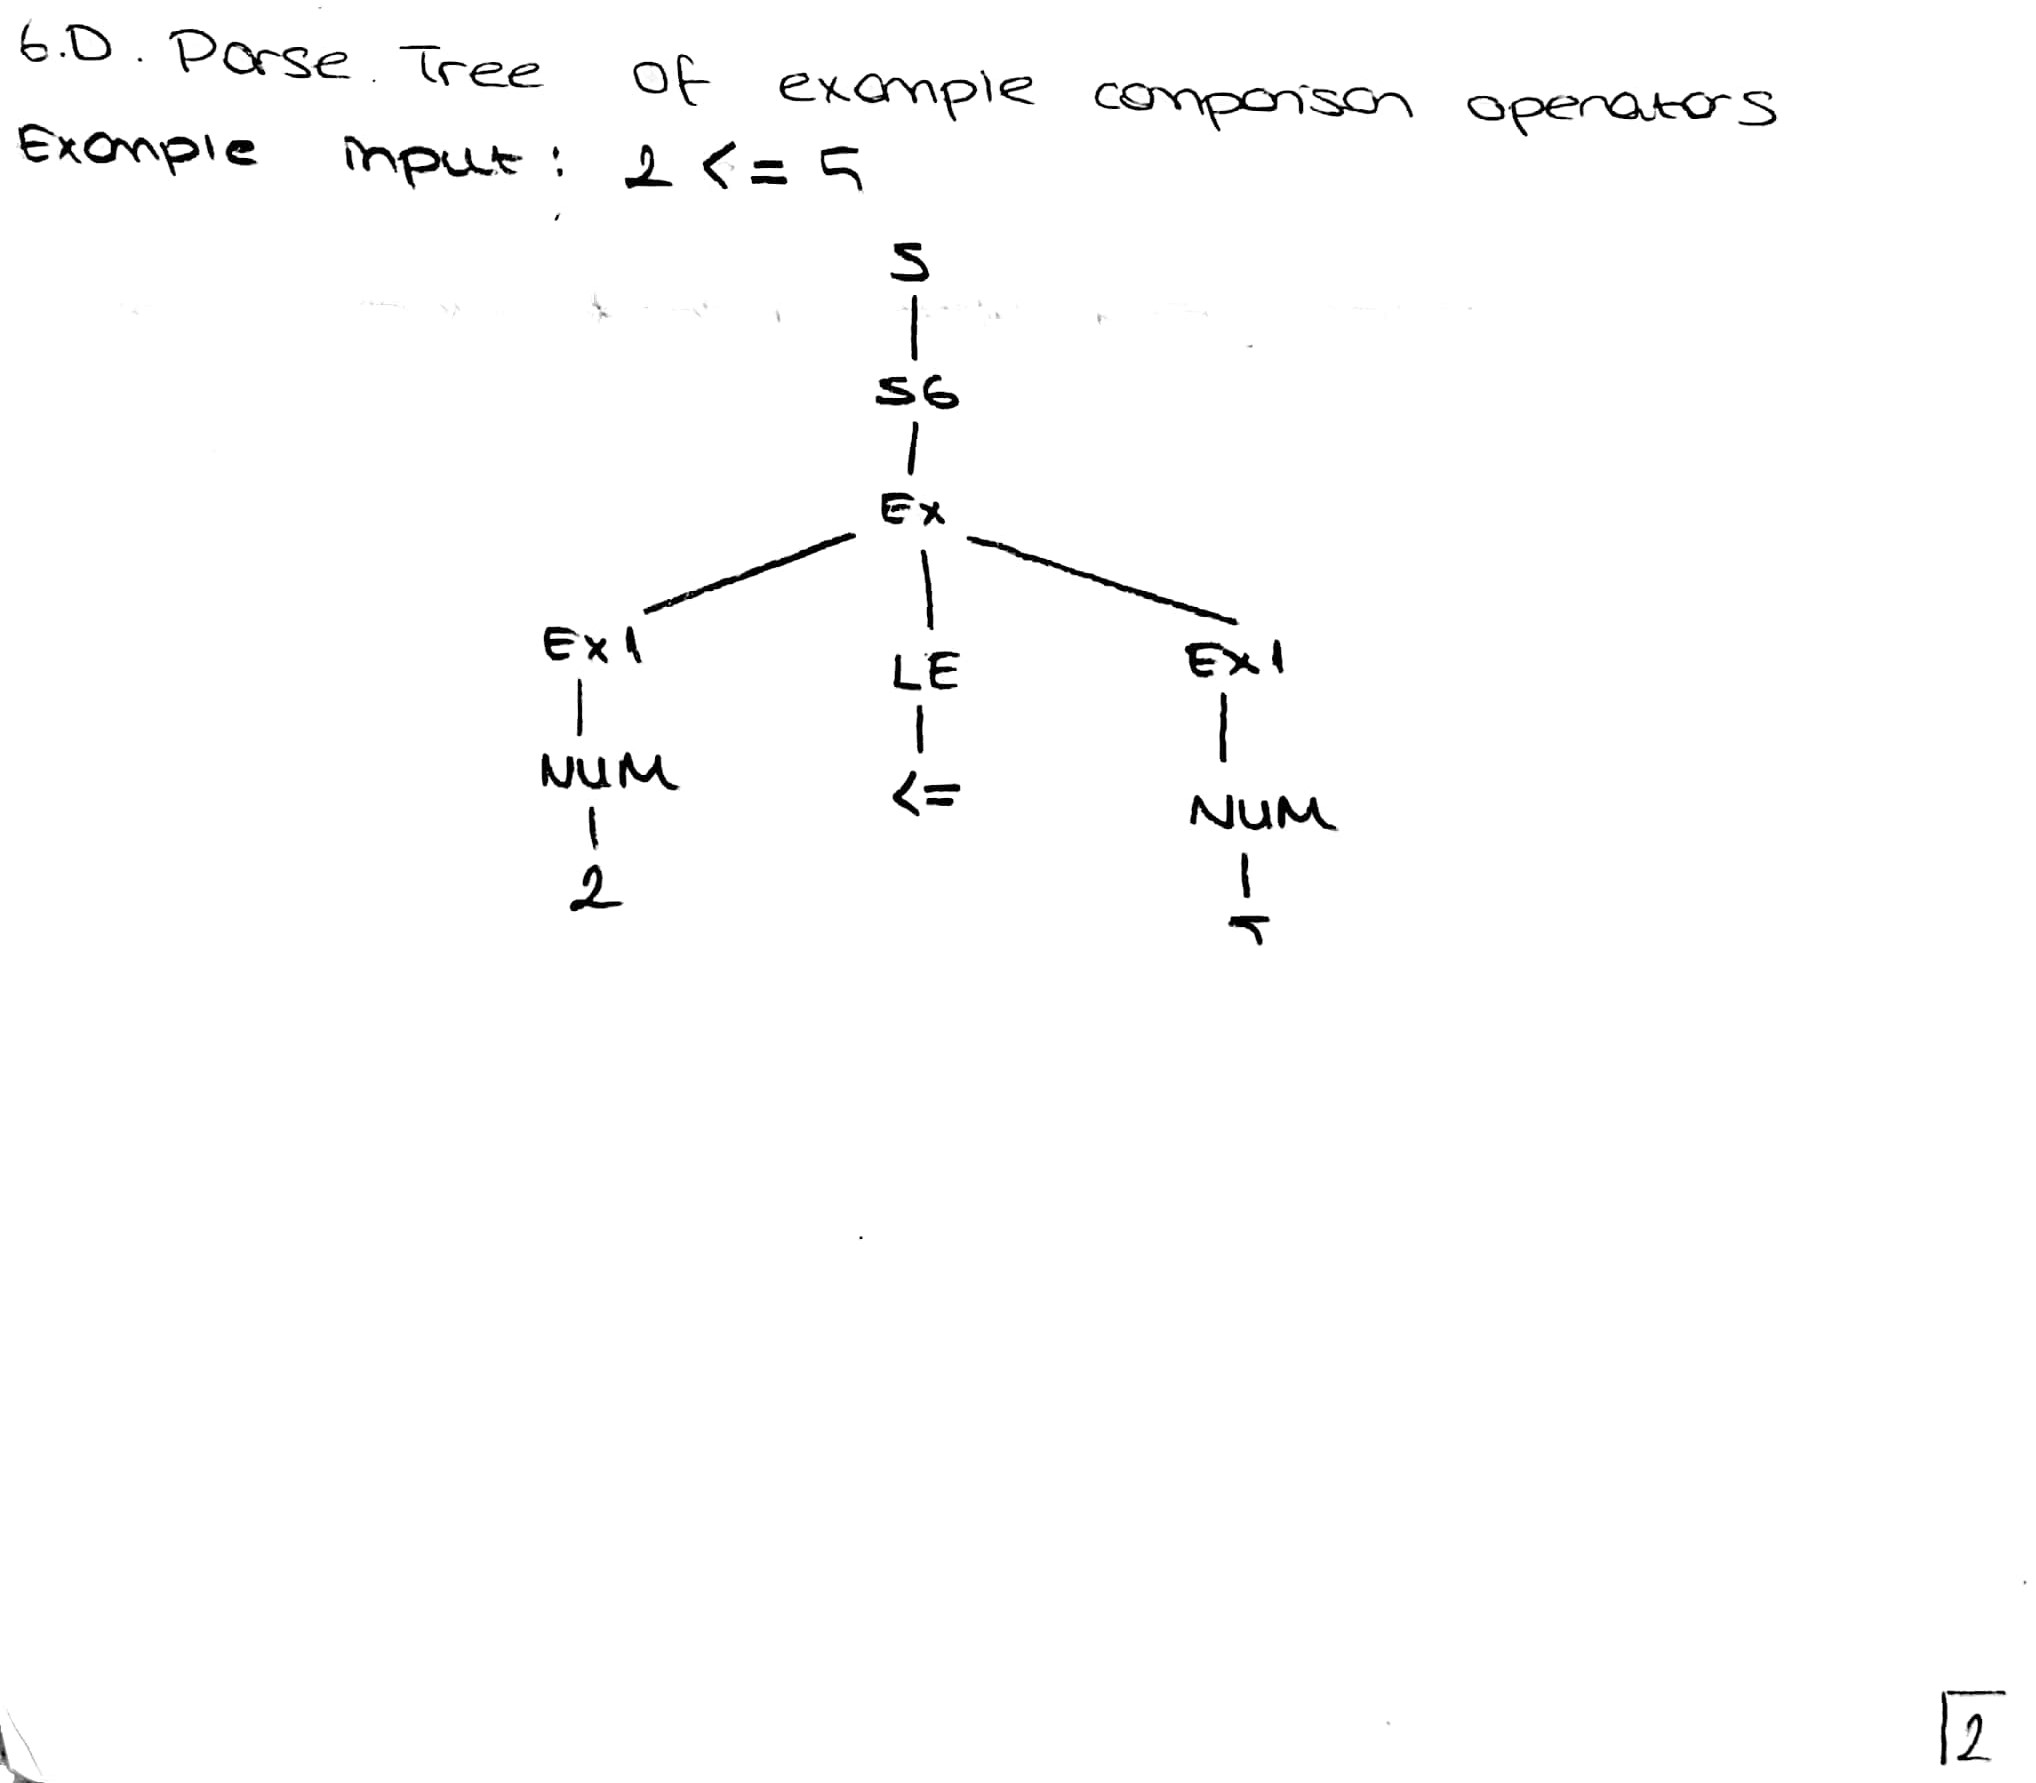 6.D. Parse Tree of example comparison operators
Example input: 2 <= 5
S
S6
Ex
Ex1 LE Ex1
NUM <= NUM
2 5
2